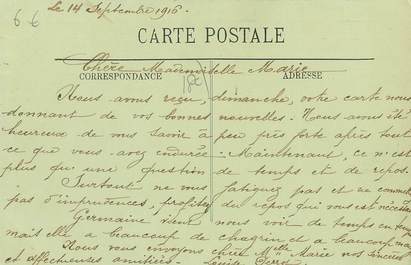 6 €
Le 14 Septembre 1916.
CARTE POSTALE
Chère Mademoiselle Marie
CORRESPONDANCE ADRESSE
Nous avons reçu, dimanche, votre carte nous
donnant de vos bonnes nouvelles. Nous avons été
heureux de vous savoir à peu près forte après tout
ce que vous avez endurée. Maintenant, ce n'est
plus qu'une question de temps et de repos.
Surtout ne vous fatiguez pas et ne commettez
pas d'imprudences, profitez du repos qui vous est nécessaire
Germaine vient nous voir de temps en temps
mais elle a beaucoup de chagrin et a beaucoup
Nous vous envoyons chère Mlle Marie nos sincères
et affectueuses amitiés.